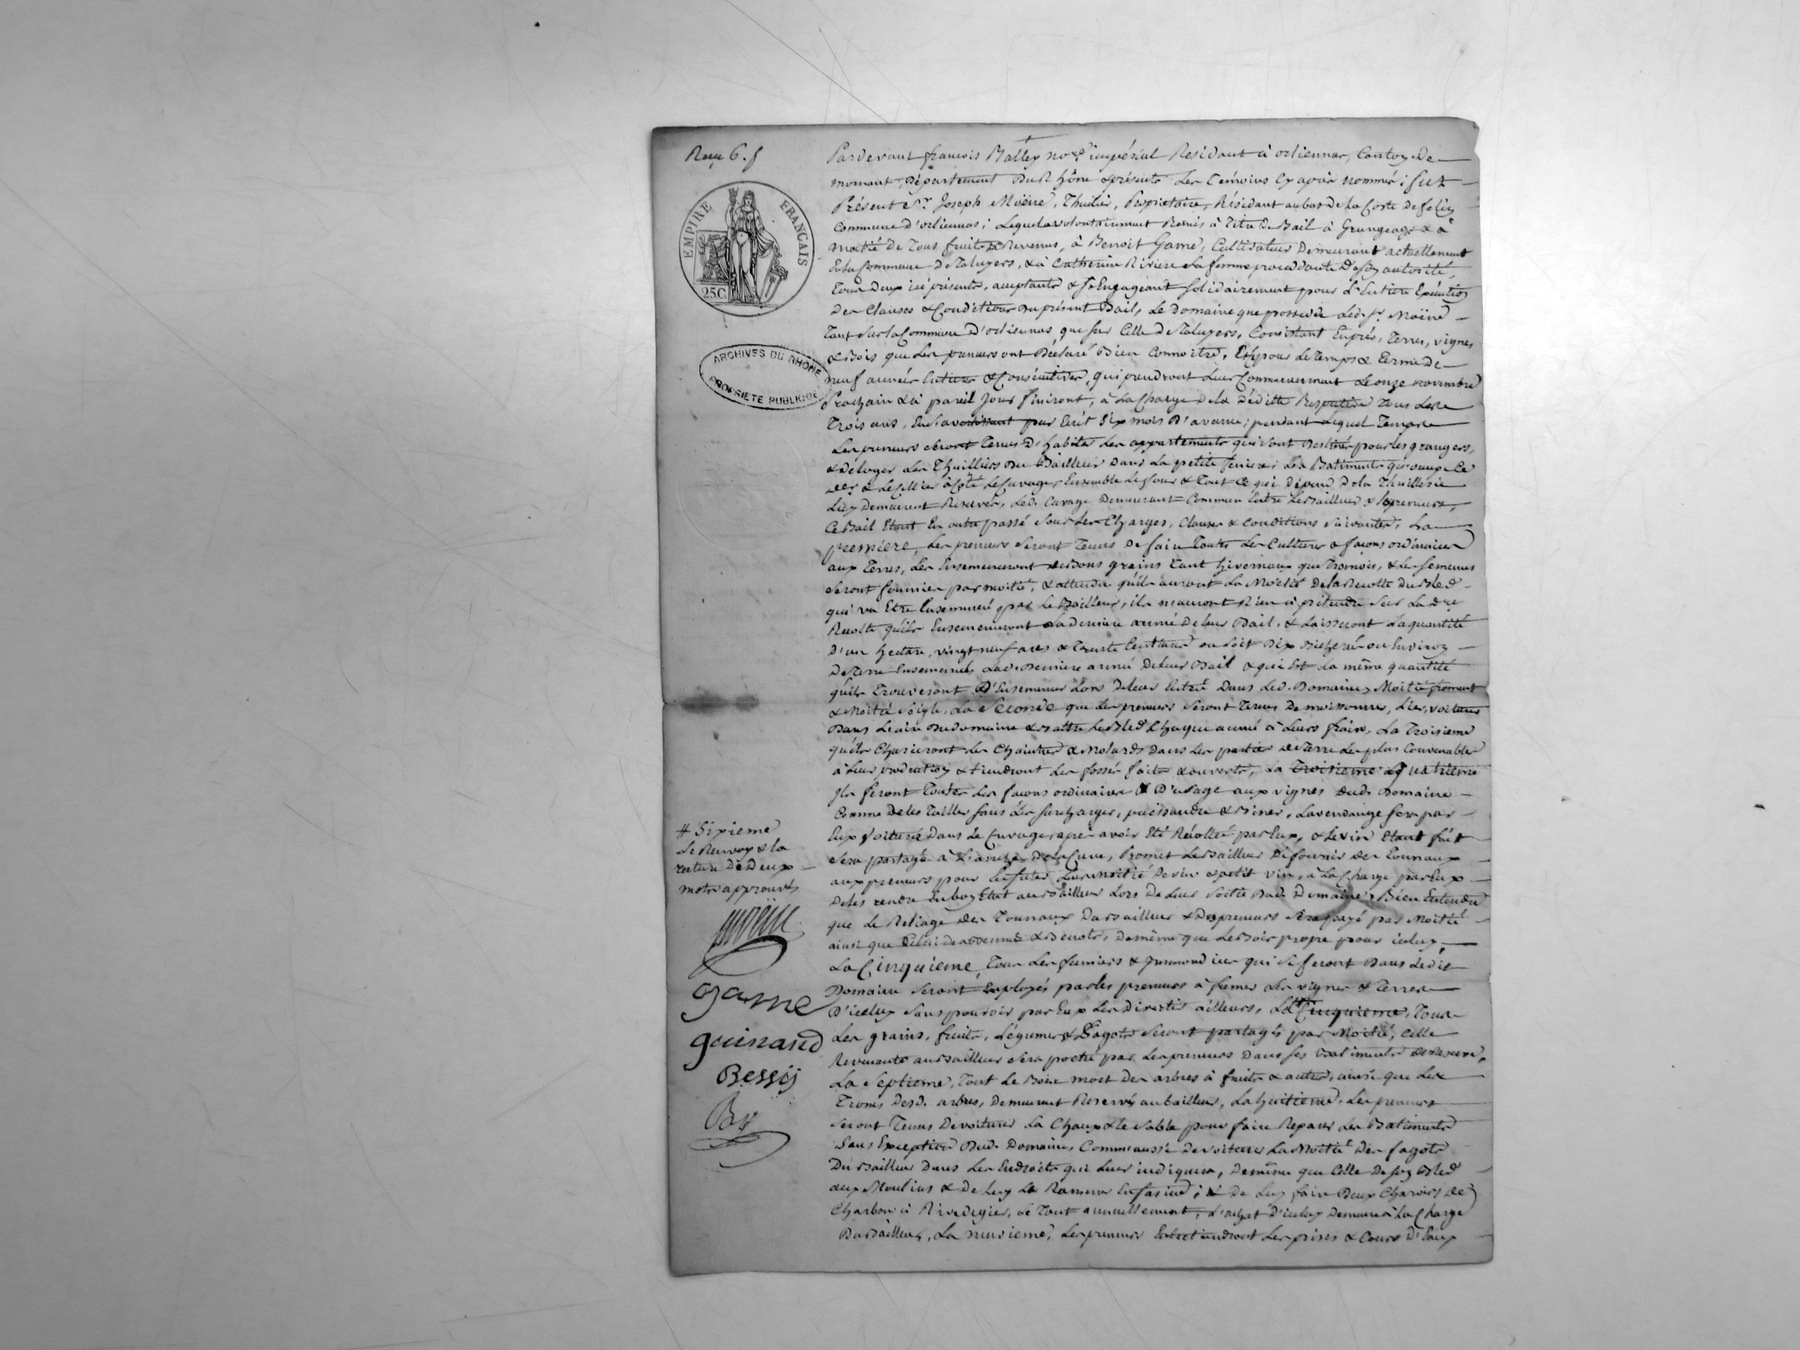 Reçu 6. f
EMPIRE FRANÇAIS
25C.
ARCHIVES DU RHÔNE
PROPRIÉTÉ PUBLIQUE
Pardevant françois Balley no.re impérial Résidant à orliennas, Canton de
mornant, Département Du Rhône & présents Les Témoins Cy après nommés; fut
Présent S.r Joseph Moïne, Thuilier, Propriétaire, Résidant au bas de La Coste
Commune d'orliennas; Lequel a volontairement Remis à titre de Bail à Grangeage & à
Moitié de Tous fruits & Revenus, à Benoit Game, Cultivateur Demeurant actuellement
En la Commune De Taluyers, & à Catherine Rivière sa femme procédante de son autorité,
Tous Deux ici présents, acceptants & s'Engageant solidairement pour L'Entière Exécution
Des Clauses & Conditions du présent Bail, Le Domaine que possède Led. S.r Moïne
Tant sur la Commune D'orliennas, que sur Celle de Taluyers, Consistant En prés, Terres, vignes
& Bois que Les preneurs ont Déclaré Bien Connoître, Et pour le temps & terme de
neuf années Entières & Consécutives, qui prendront Leur Commencement Le onze novembre
Prochain & à pareil Jour finiront, à La Charge de la déditte Respective Tous Les
Trois ans, En s'avertissant par Ecrit six mois D'avance; pendant Lequel Temps
Les preneurs seront Tenus D'habiter Les appartements qui sont Destinés pour les grangers,
& De loger Les Thuilliers Du Bailleur Dans La petite; Les Batiments
& le Cellier à Côté Le Cuvage, Ensemble Le four & Tout Ce qui dépend De la Thuillerie
Luy Demeurent Réservés, Led. Cuvage Demeurant Commun Entre Le Bailleur & les preneurs,
Ce Bail Etant En outre passé sous Les Charges, Clauses & Conditions suivantes, La
première, Les preneurs seront Tenus De faire Toutes Les Cultures & façons ordinaires
aux Terres, Les Ensemenceront de bons grains Tant hivernaux que Tremois, & Les semences
seront fournies par moitié, & attendu qu'ils auront La Moitié de la Récolte Du Bled
qui va Etre Ensemencé par Le Bailleur, ils n'auront Rien à prétendre sur La
Récolte qu'ils Ensemenceront La Dernière année De leur Bail, & Laisseront La quantité
D'un hectare, vingt neuf ares & Trente Centiares ou soit Dix Bicherées ou Environ
De Terre Ensemencés La d. Dernière année De leur Bail & qui est La même quantité
qu'ils Trouveront D'Ensemencer Lors De leur Entrée Dans Led. Domaine, Moitié froment
& Moitié seigle, La Seconde que Les preneurs seront Tenus De moissonner, Lier, voiturer
Dans L'aire Du Domaine & Battre Les Bleds Chaque année à Leurs fraix, La Troisième
qu'ils Charieront Les Chaintres & Molards Dans Les parties De Terre Les plus Convenables
à Leur production & tiendront Les fossés faits & ouverts, La Troisième Quatrième
Ils feront Toutes Les façons ordinaires & D'usage aux vignes dud. Domaine
Comme De les Tailler sans Les surcharger, & Biner, La vendange sera par
Eux voiturée Dans Le Cuvage, après avoir Eté Récoltée par Eux, & Le vin Etant fait
sera partagé à L'anche De la Cuve, Promet Le Bailleur De fournir des Tonnaux
aux preneurs pour Leur moitié De vin & petit vin, à La Charge par Eux
De les rendre En bon Etat au Bailleur Lors De leur sortie Dud. Domaine, Bien Entendu
que Le Reliage des Tonnaux Du Bailleur & Des preneurs sera payé par Moitié
ainsi que Celui des Bennes & Benots, De même que Le Bois propre pour iceluy,
La Cinquième, Tous Les fumiers & Immondices qui se feront Dans Ledit
Domaine seront Employés par les preneurs à fumer Les vignes & Terres
D'iceluy sans pouvoir par Eux Les Divertir ailleurs, La Cinquième, Tous
Les grains, fruits, Légumes & fagots seront partagés par Moitié, Celle
Revenante au Bailleur sera portée par Les preneurs Dans ses Batiments de réserve.
La Septieme, Tout Le Bois mort Des arbres à fruits & autres, ainsi que Les
Troncs Desd. arbres, Demeurent Réservés au bailleur, La huitieme, Les preneurs
seront Tenus De voiturer La Chaux & Le sable pour faire Réparer Les Batiments
Sans Exception Dud. Domaine, Comme aussi De voiturer La Moitié Des fagots
Du Bailleur Dans Les Endroits qui Leur indiquera, De même que Celle De son Bled
aux Moulins & De Luy La Ramener En farine; & De Luy faire Deux Charrois De
Charbon à Rivedegier, Le Tout annuellement, L'achat d'iceluy Demeure à La Charge
Du Bailleur, La neuvieme, Les preneurs Entretiendront Les prises & Cours d'Eaux
# Sixieme
Le Renvoy & la
rature De Deux
mots approuvés
Moïne
game
guinand
Bessy